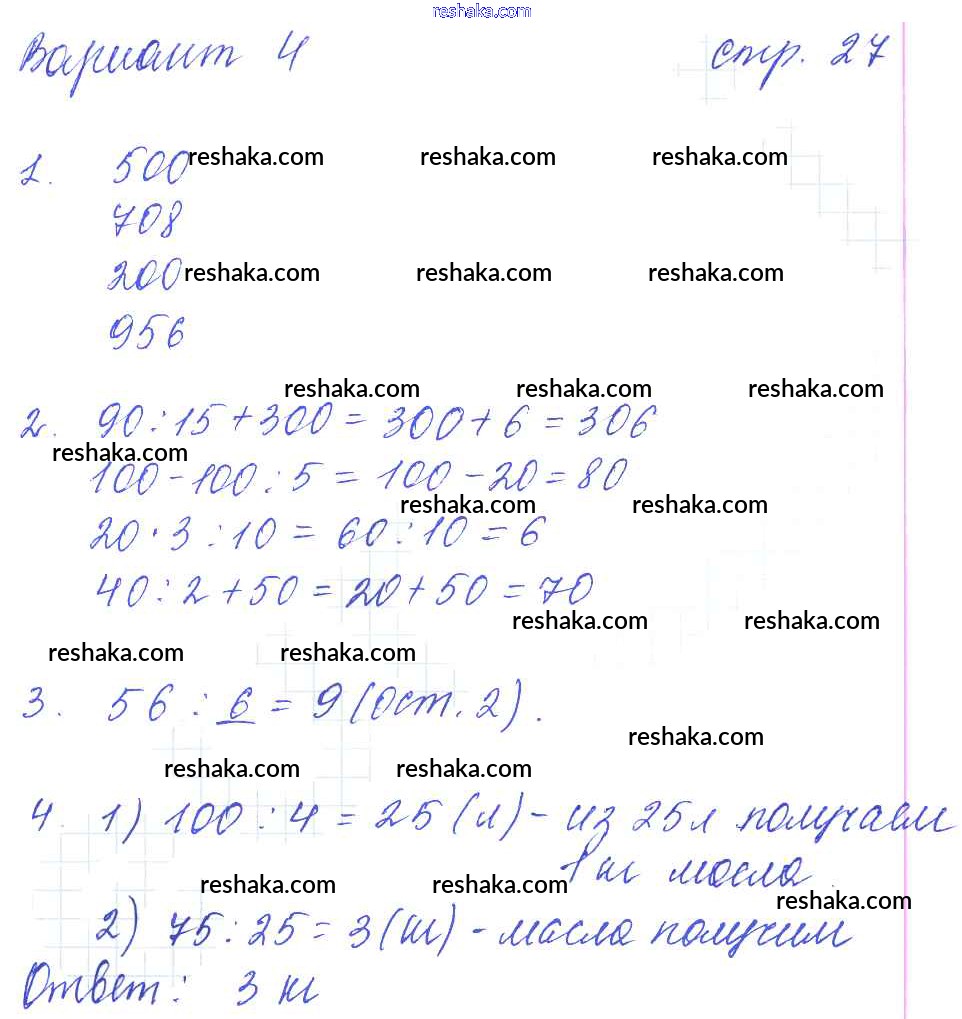 reshaka.com
Вариант 4 стр. 27
1. 500 reshaka.com reshaka.com reshaka.com
708
200 reshaka.com reshaka.com reshaka.com
956
reshaka.com reshaka.com reshaka.com
2. 90 : 15 + 300 = 300 + 6 = 306
reshaka.com
100 - 100 : 5 = 100 - 20 = 80
reshaka.com reshaka.com
20 · 3 : 10 = 60 : 10 = 6
40 : 2 + 50 = 20 + 50 = 70
reshaka.com reshaka.com
reshaka.com reshaka.com
3. 56 : 6 = 9 (ост. 2).
reshaka.com
reshaka.com reshaka.com
4. 1) 100 : 4 = 25 (л) - из 25 л получаем
1 кг масла
reshaka.com reshaka.com
reshaka.com
2) 75 : 25 = 3 (кг) - масла получим
Ответ: 3 кг